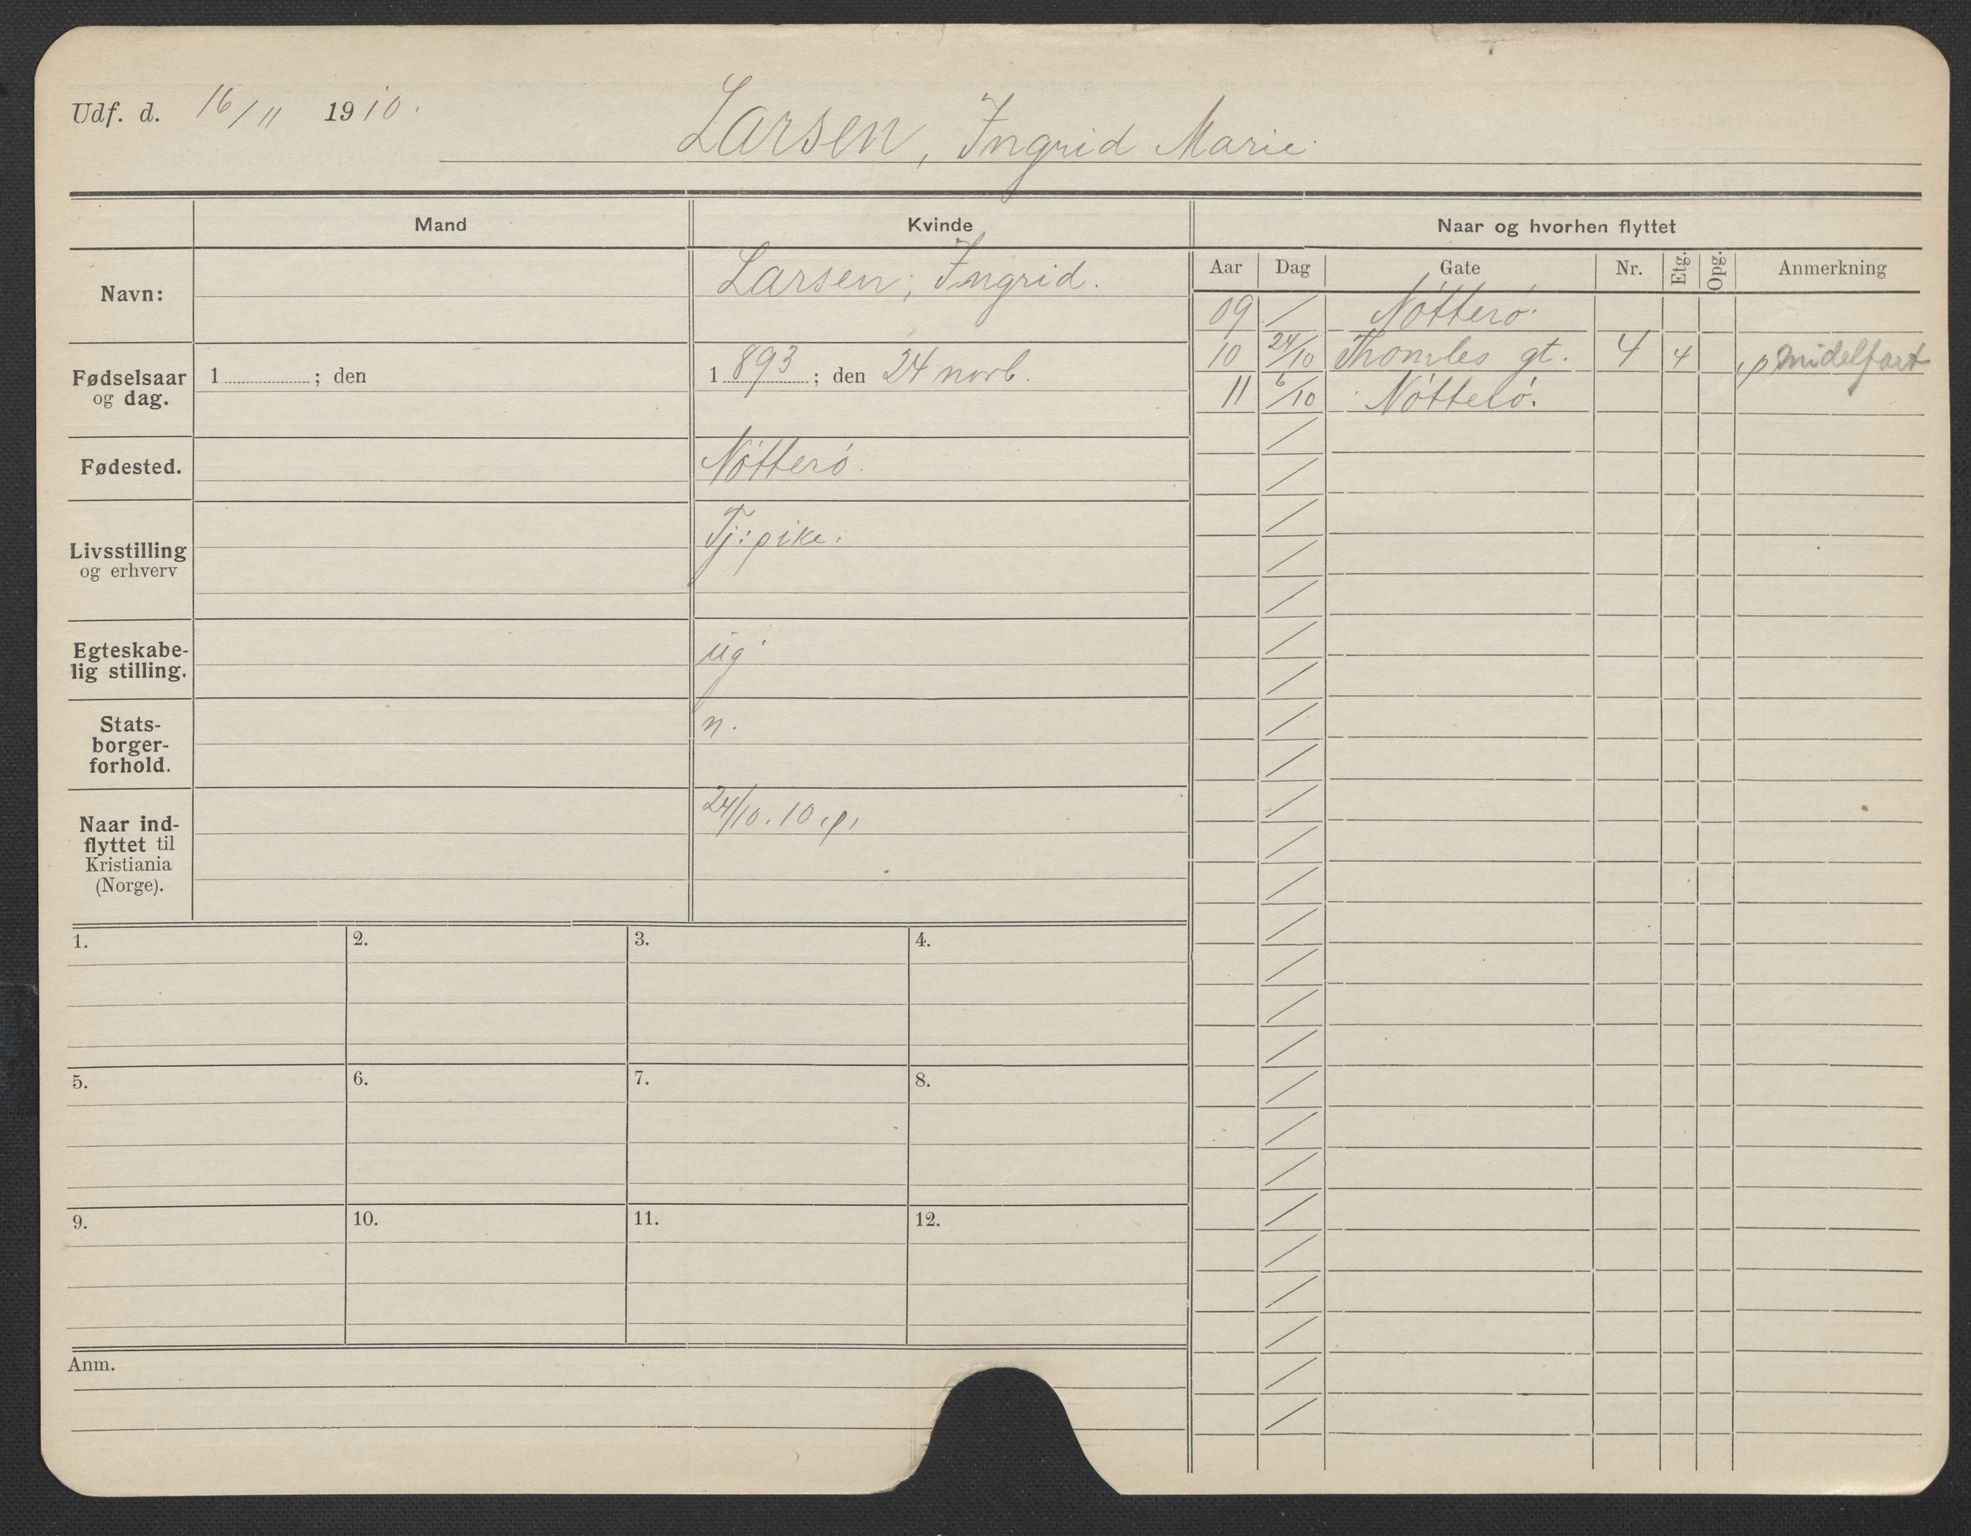 Udf. d. 16/11 1910.
Larsen, Ingrid Marie
Mand
Kvinde
Naar og hvorhen flyttet
Navn:
Larsen, Ingrid.
Aar Dag Gate Nr. Etg. Opg. Anmerkning
09 / Nötterö.
10 24/10 Thomles gt. 4 4 p midelfart
11 6/10 Nötterö.
Fødselsaar og dag.
1 ; den
1893 ; den 24 novb.
Fødested.
Nötterö.
Livsstilling og erhverv
Tj: pike.
Egteskabe-
lig stilling.
ug
Stats-
borger-
forhold.
n.
Naar ind-
flyttet til
Kristiania
(Norge).
24/10. 10. p.
1. 2. 3. 4.
5. 6. 7. 8.
9. 10. 11. 12.
Anm.